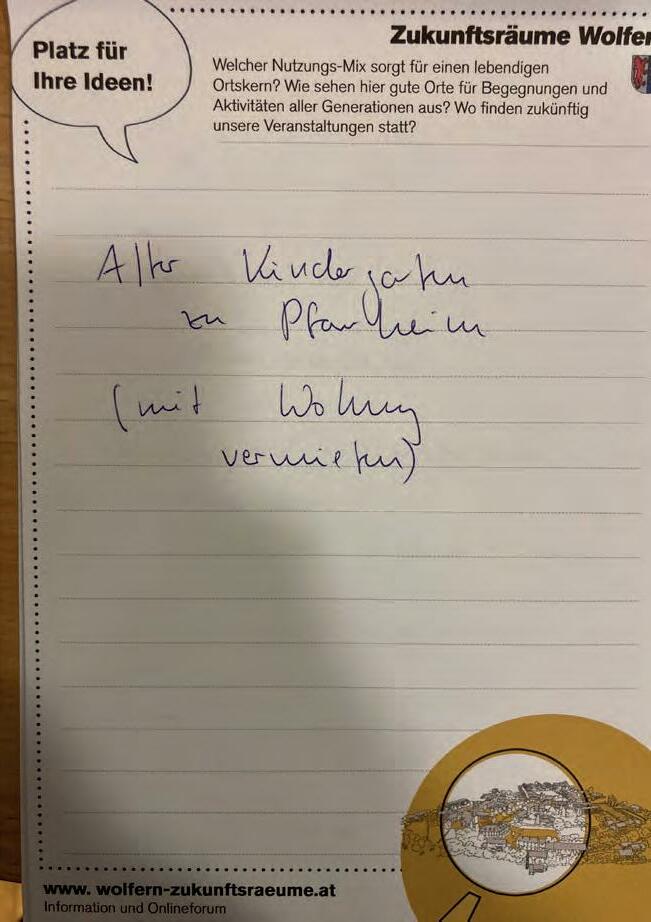 Platz für
Ihre Ideen!
Zukunftsräume Wolfer
Welcher Nutzungs-Mix sorgt für einen lebendigen
Ortskern? Wie sehen hier gute Orte für Begegnungen und
Aktivitäten aller Generationen aus? Wo finden zukünftig
unsere Veranstaltungen statt?
Alter Kindergarten
zu Pfarrheim
(mit Wohnung
vermieten)
www. wolfern-zukunftsraeume.at
Information und Onlineforum